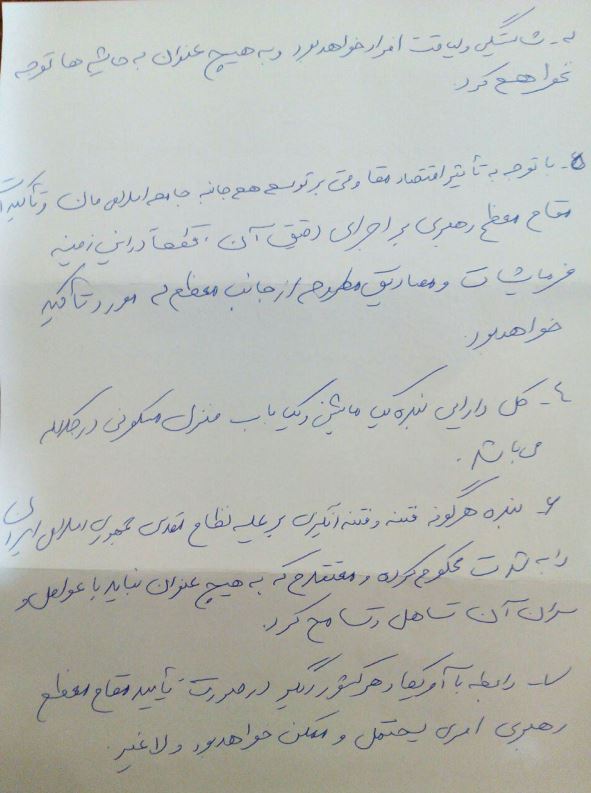 به شایستگی ولیاقت افراد خواهد بود و به هیچ عنوان به حاشیه ها توجه
نخواهم کرد.
۵- با توجه به تأثیر اقتصاد مقاومتی بر توسعه همه جانبه جامعه اسلامی مان و تأکیدات
مقام معظم رهبری بر اجرای دقیق آن، قطعاً در این زمینه
فرمایشات و مصادیق مطروحه از جانب معظم له مورد تأکید
خواهد بود.
۴- کل دارایی بنده یک ماشین و یک باب منزل مسکونی در کلاله
می باشد.
۶- بنده هرگونه فتنه و فتنه انگیزی بر علیه نظام مقدس جمهوری اسلامی ایران
را به شدت محکوم کرده و معتقدم که به هیچ عنوان نباید با عوامل و
سران آن تساهل و تسامح کرد.
۷- رابطه با آمریکا و هر کشور دیگر در صورت تأیید مقام معظم
رهبری امری محتمل و ممکن خواهد بود و لاغیر.